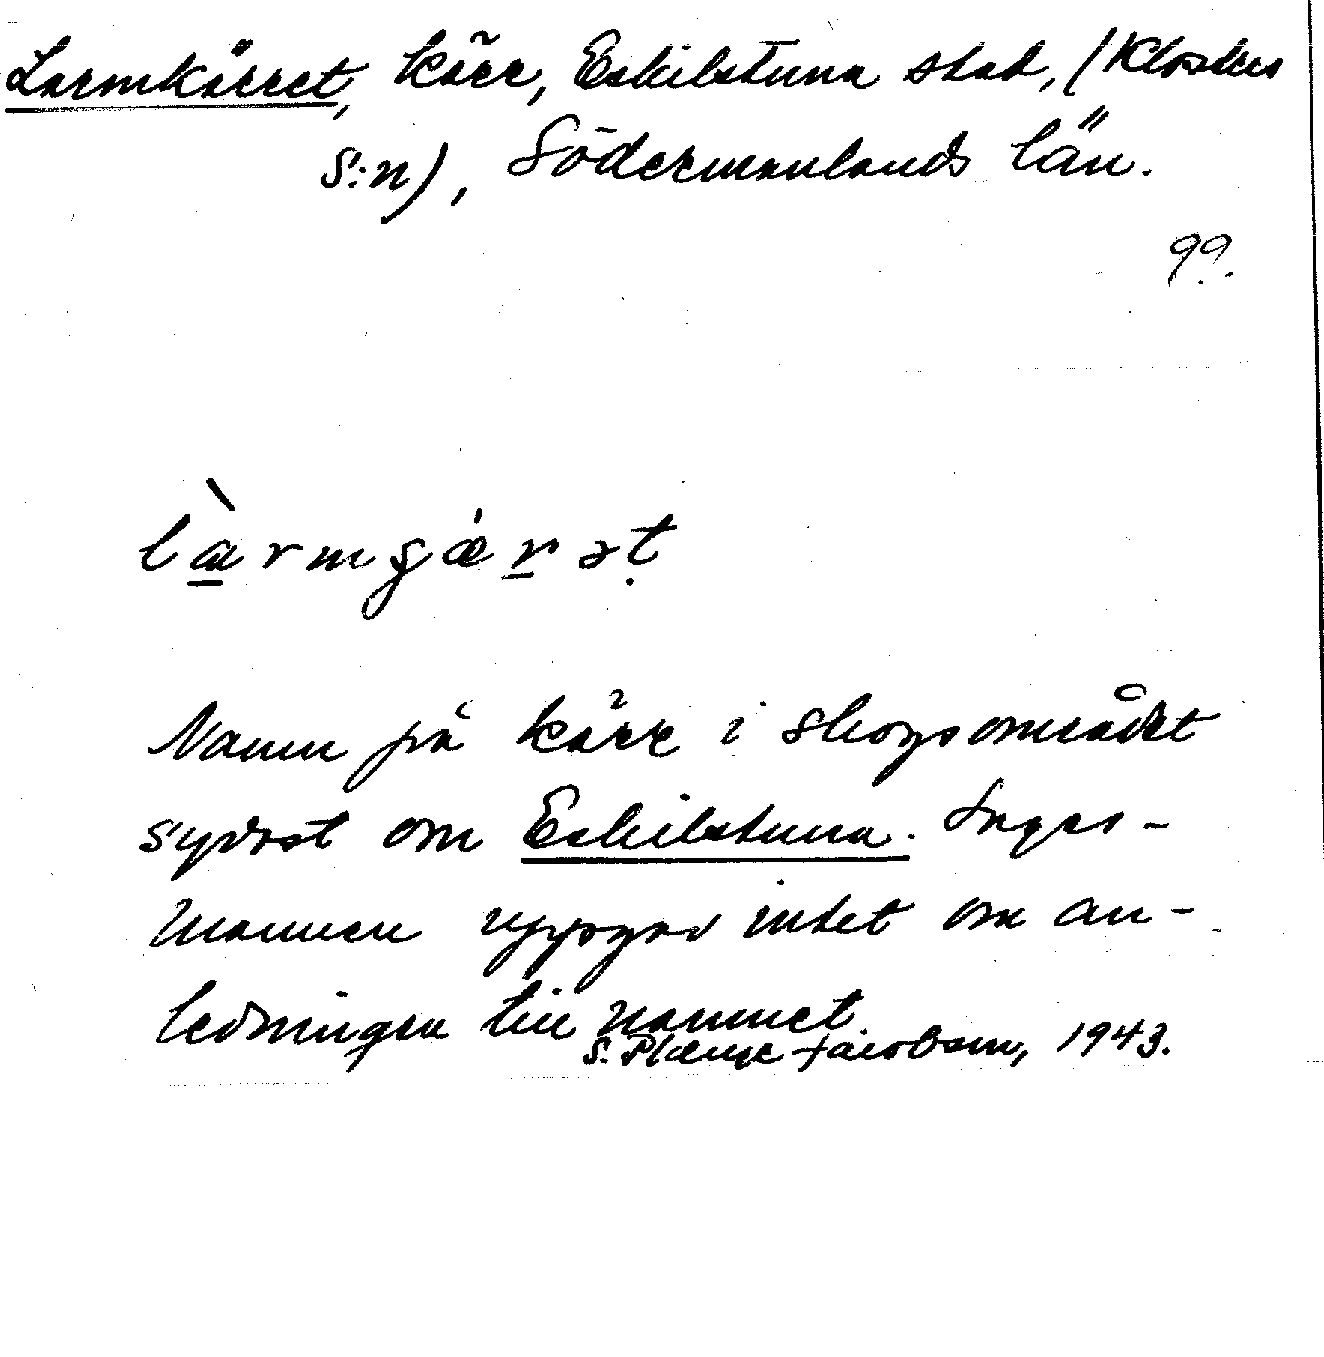 Larmkärret, kärr, Eskilstuna stad, (Klosters
s:n), Södermanlands län.
99.
làrmçærət
Namn på kärr i skogsområdet
sydost om Eskilstuna. Sages-
mannen uppgav intet om an-
ledningen till namnet.
S. Plænge Jacobson, 1943.